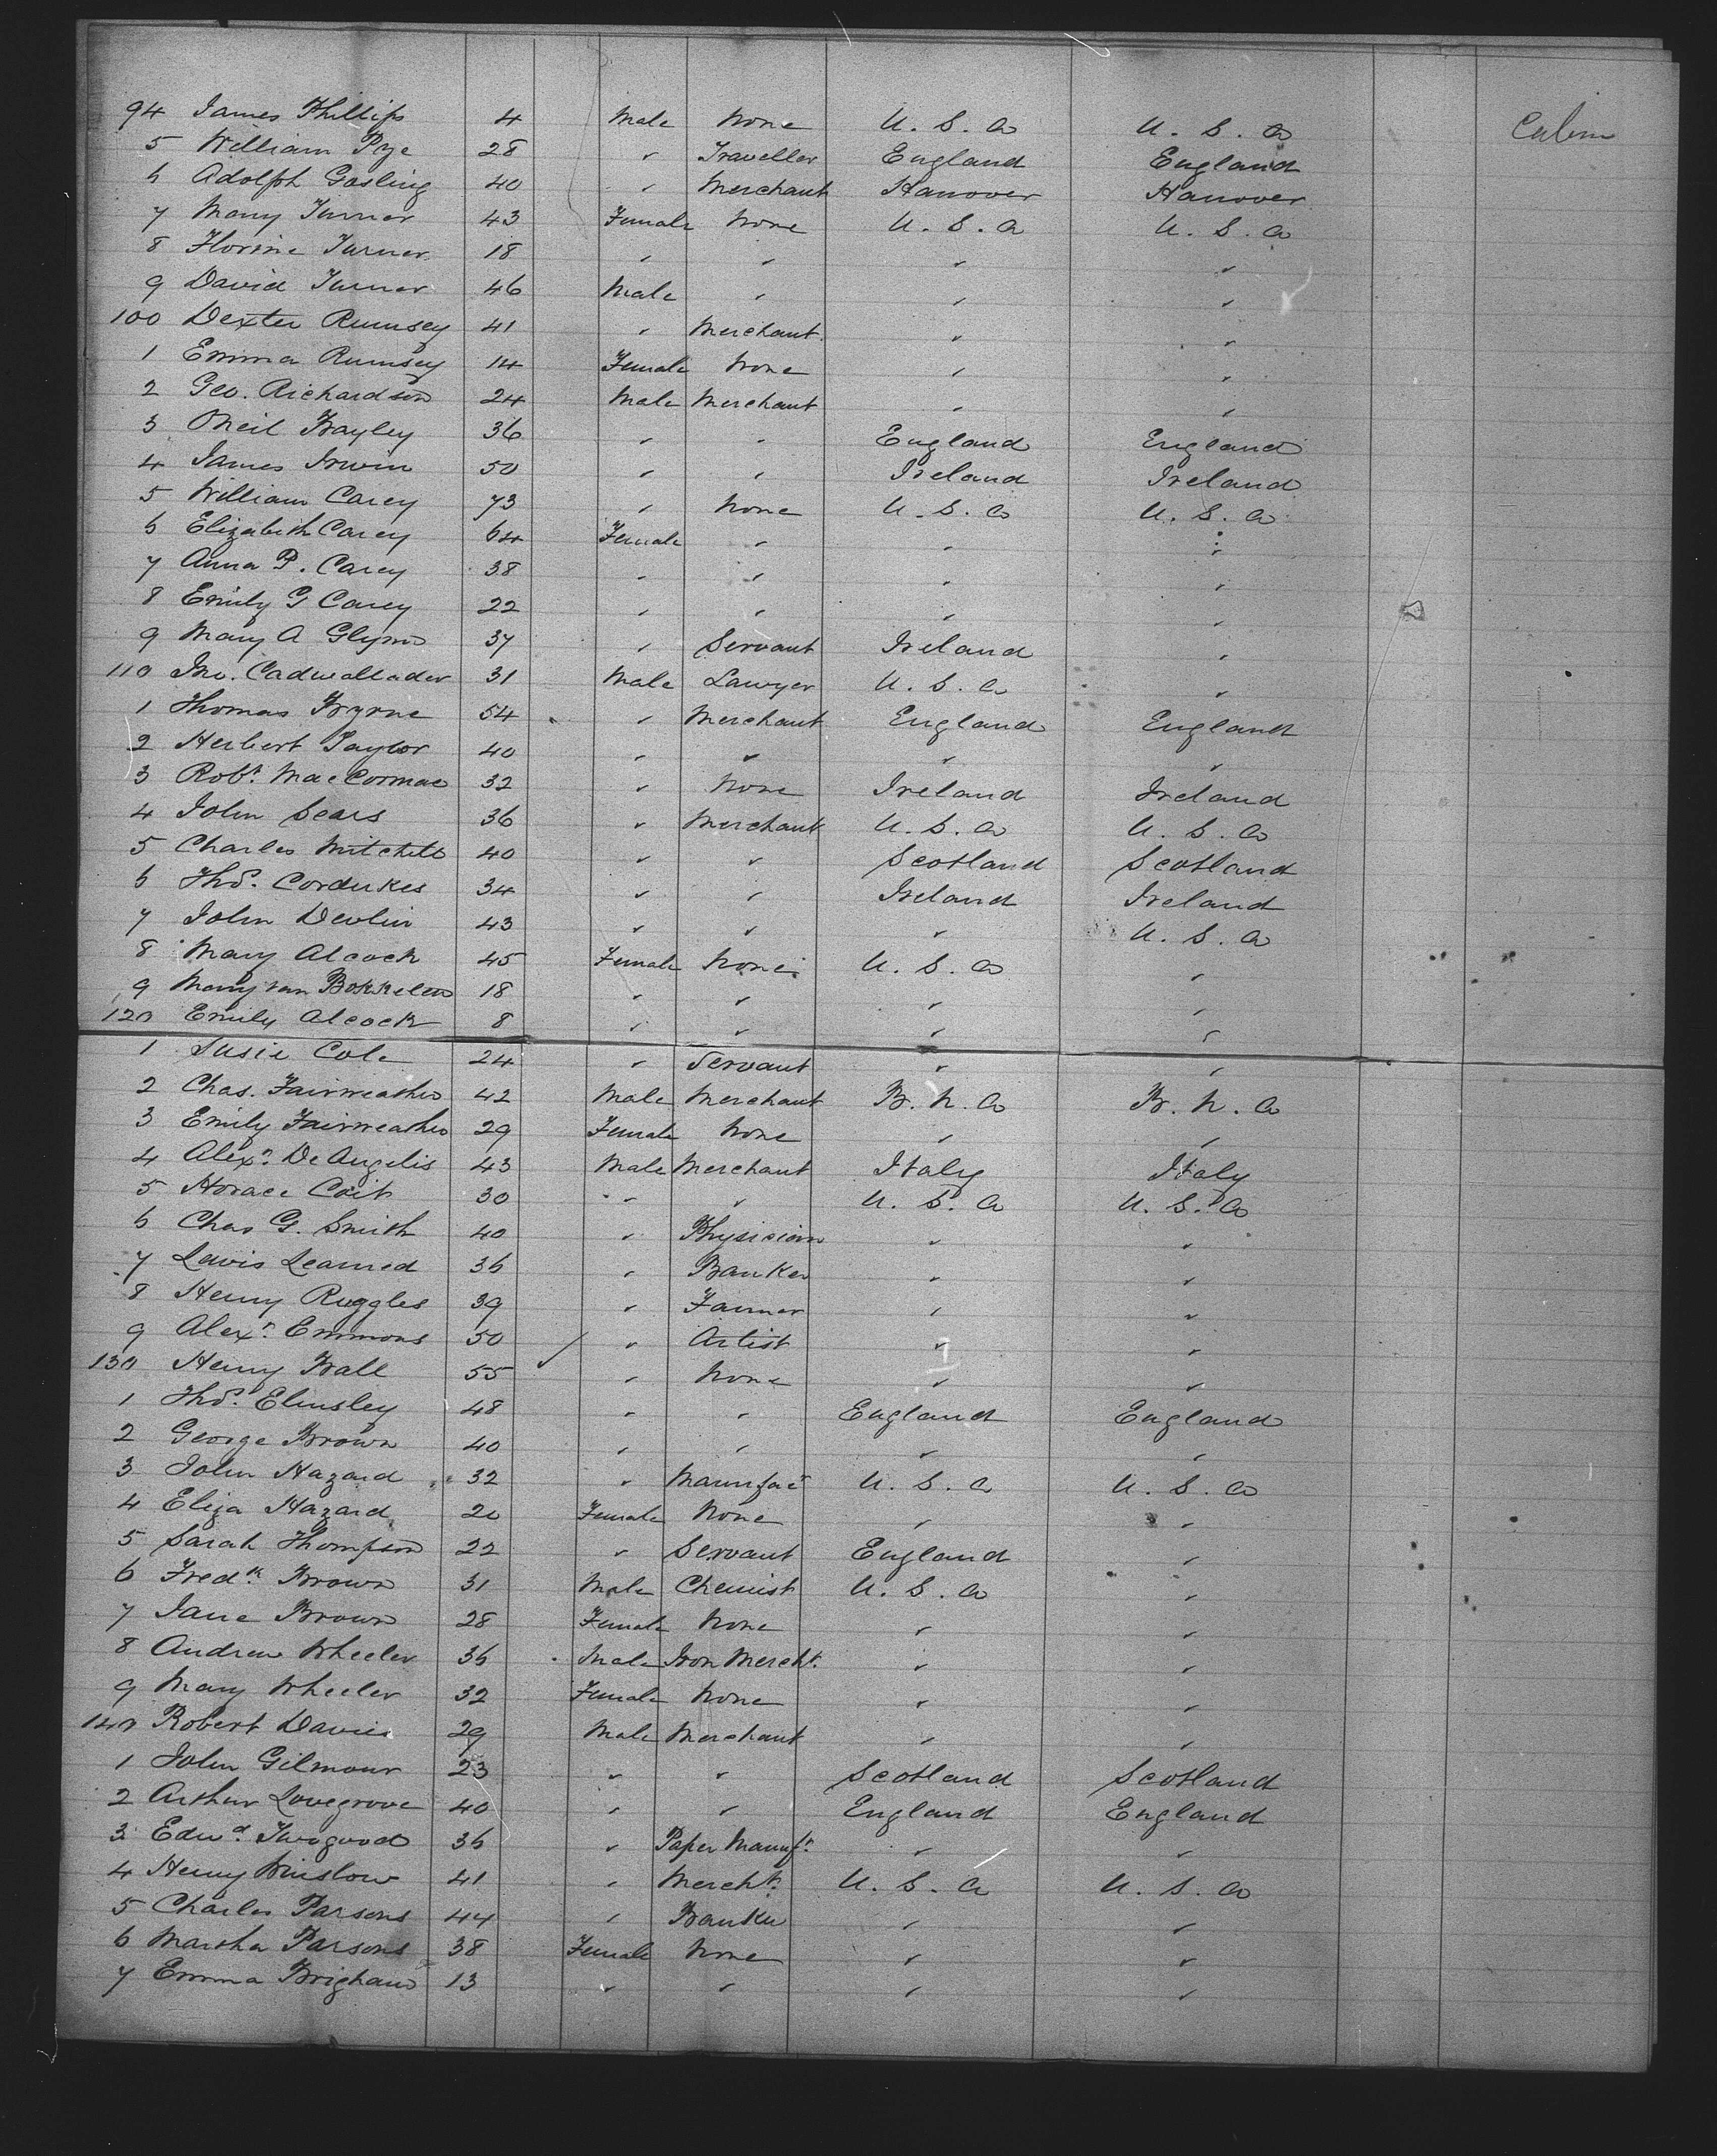 94 James Phillips 4 Male None U. S. A U. S. A Cabin
5 William Pye 28 " Traveller England England
6 Adolph Gosling 40 " Merchant Hanover Hanover
7 Mary Turner 43 Female None U. S. A U. S. A
8 Florine Turner 18 " " " "
9 David Turner 46 Male " " "
100 Dexter Rumsey 41 " Merchant " "
1 Emma Rumsey 14 Female None " "
2 Geo. Richardson 24 Male Merchant " "
3 Oneil Bayley 36 " " England England
4 James Irwin 50 " " Ireland Ireland
5 William Carey 73 " None U. S. A U. S. A
6 Elizabeth Carey 64 Female " " "
7 Anna P. Carey 38 " " " "
8 Emily G Carey 22 " " " "
9 Mary A Glynn 37 " Servant Ireland "
110 Jno. Cadwallader 31 Male Lawyer U. S. A "
1 Thomas Byrne 54 " Merchant England England
2 Herbert Taylor 40 " " " "
3 Robt. MacCormac 32 " None Ireland Ireland
4 John Sears 36 " Merchant U. S. A U. S. A
5 Charles Mitchell 40 " " Scotland Scotland
6 Thos. Cordukes 34 " " Ireland Ireland
7 John Devlin 43 " " " U. S. A
8 Mary Alcock 45 Female None U. S. A "
9 Mary van Bokkelen 18 " " " "
120 Emily Alcock 8 " " " "
1 Susie Cole 24 " Servant " "
2 Chas. Fairweather 42 Male Merchant B. N. A B. N. A
3 Emily Fairweather 29 Female None " "
4 Alexr. De Angelis 43 Male Merchant Italy Italy
5 Horace Coit 30 " " U. S. A U. S. A
6 Chas G. Smith 40 " Physician " "
7 Lewis Learned 36 " Banker " "
8 Henry Ruggles 39 " Farmer " "
9 Alexr. Emmons 50 " Artist " "
130 Henry Ball 55 " None " "
1 Thos. Elmsley 48 " " England England
2 George Brown 40 " " " "
3 John Hazard 32 " Manufac U. S. A U. S. A
4 Eliza Hazard 20 Female None " "
5 Sarah Thompson 22 " Servant England "
6 Fredk Brown 31 Male Chemist U. S. A "
7 Jane Brown 28 Female None " "
8 Andrew Wheeler 36 Male Iron Mercht. " "
9 Mary Wheeler 32 Female None " "
140 Robert Davies 29 Male Merchant " "
1 John Gilmour 23 " " Scotland Scotland
2 Arthur Lovegrove 40 " " England England
3 Edwd. Twogood 36 " Paper Manufr. " "
4 Henry Winslow 41 " Mercht. U. S. A U. S. A
5 Charles Parsons 44 " Banker " "
6 Martha Parsons 38 Female None " "
7 Emma Brigham 13 " " " "